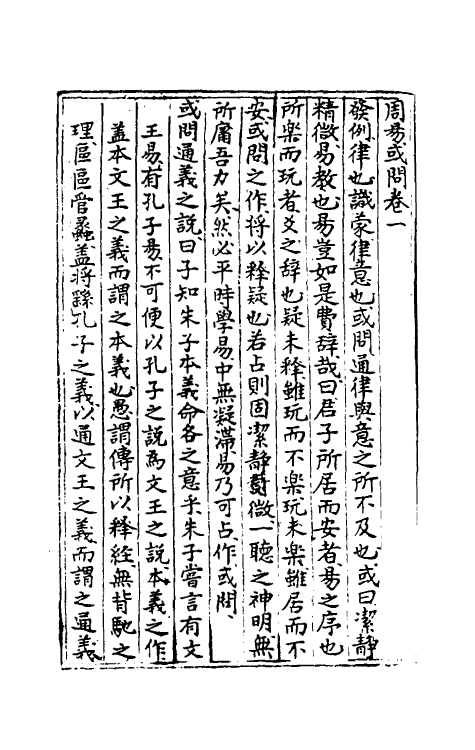 周易或問卷一
發例律也識蒙律意也或問通律與意之所不及也或曰潔靜
精微易教也易豈如是費辞哉曰君子所居而安者易之序也
所楽而玩者爻之辞也疑未释雖玩而不楽玩未楽雖居而不
安或問之作将以释疑也若占則固潔静精微一聽之神明無
所屑吾力矣然必平時學易中無凝滞易乃可占作或問
或問通義之説曰子知朱子本義命名之意乎朱子嘗言有文
王易有孔子易不可便以孔子之説為文王之説本義之作
盖本文王之義而謂之本義也愚謂傳所以释經無背馳之
理區區管蠡盖将繇孔子之義以通文王之義而謂之通義